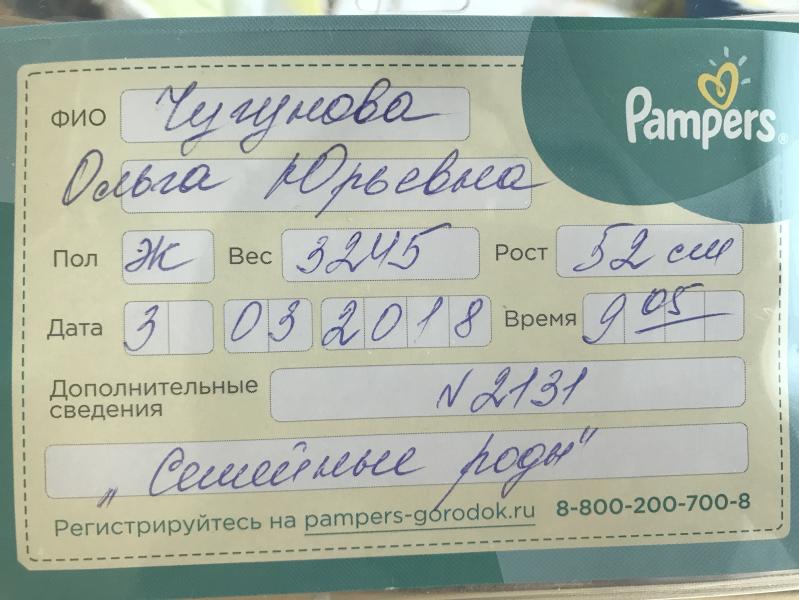 Pampers®
ФИО Чугунова
Ольга Юрьевна
Пол Ж Вес 3245 Рост 52 см
Дата 3 03 2018 Время 9 05
Дополнительные сведения N 2131
„Семейные роды"
Регистрируйтесь на pampers-gorodok.ru 8-800-200-700-8